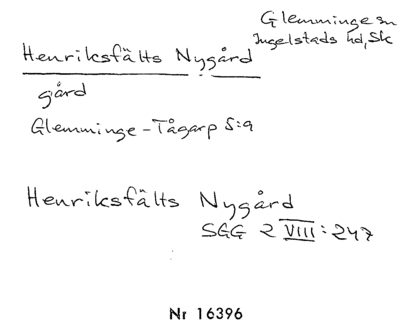 Glemminge sn
Ingelstads hd, Sk
Henriksfälts Nygård
gård
Glemminge-Tågarp 5:9
Henriksfälts Nygård
SGG 2 VIII: 247
Nr 16396